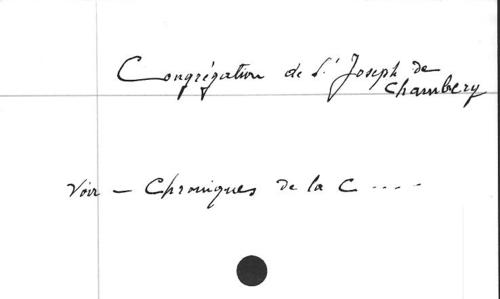 Congrégation de St Joseph de
Chambery
Voir - Chroniques de la C ....